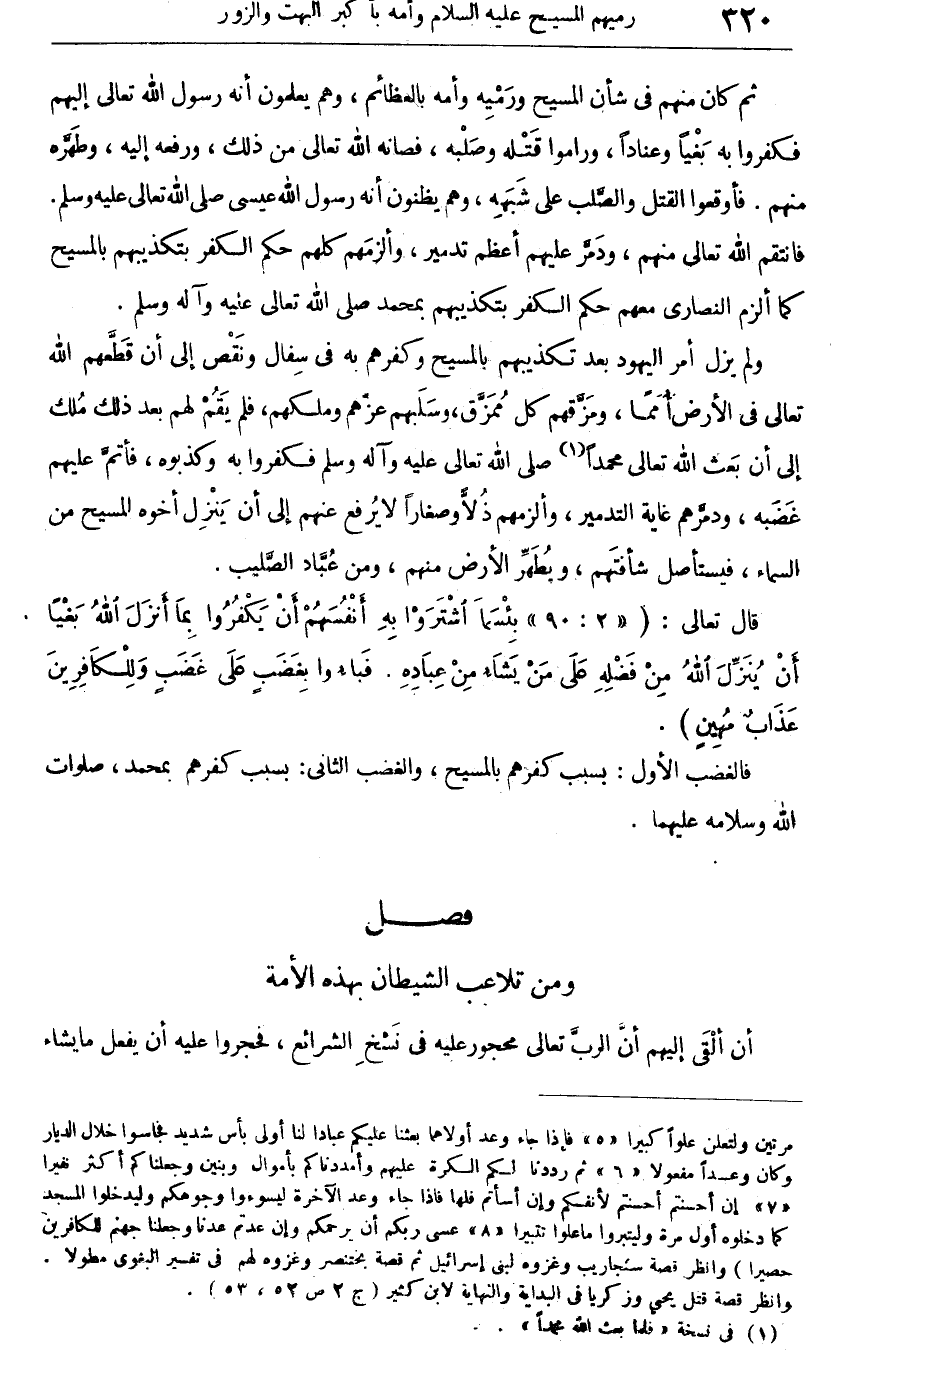 ٣٢٠ رميهم المسيح عليه السلام وأمه بأكبر البهت والزور
ثم كان منهم فى شأن المسيح ورَمْيِه وأمه بالعظائم ، وهم يعلمون أنه رسول الله تعالى إليهم
فكفروا به بَغْياً وعناداً ، وراموا قَتْله وصَلْبه ، فصانه الله تعالى من ذلك ، ورفعه إليه ، وطهَّره
منهم . فأوقعوا القتل والصَّلب على شَبَهِه ، وهم يظنون أنه رسول الله عيسى صلى الله تعالى عليه وسلم.
فانتقم الله تعالى منهم ، ودَمَّر عليهم أعظم تدمير ، وألزمَهم كلهم حكم الكفر بتكذيبهم بالمسيح
كما ألزم النصارى معهم حكم الكفر بتكذيبهم بمحمد صلى الله تعالى عليه وآله وسلم .
ولم يزل أمر اليهود بعد تكذيبهم بالمسيح وكفرهم به فى سِفال ونَقْص إلى أن قَطَّعهم الله
تعالى فى الأرض أُمَماً ، ومَزَّقهم كل مُمَزَّق، وسَلَبهم عزّهم وملكهم، فلم يَقُمْ لهم بعد ذلك مُلك
إلى أن بَعَث الله تعالى محمداً(١) صلى الله تعالى عليه وآله وسلم فكفروا به وكذبوه ، فأتمَّ عليهم
غَضَبه ، ودمَّرهم غاية التدمير ، وألزمهم ذُلاًّ وصغاراً لا يُرفع عنهم إلى أن يَنْزِل أخوه المسيح من
السماء ، فيستأصل شأفتَهم ، ويُطَهِّر الأرض منهم ، ومن عُبَّاد الصَّليب .
قال تعالى : ( « ٢ : ٩٠ » بِئْسَمَا ٱشْتَرَوْا بِهِ أَنْفُسَهُمْ أَنْ يَكْفُرُوا بِمَا أَنزَلَ ٱللهُ بَغْيًا
أَنْ يُنَزِّلَ ٱللهُ مِنْ فَضْلِهِ عَلَى مَنْ يَشَاءُ مِنْ عِبَادِهِ . فَبَاءُوا بِغَضَبٍ عَلَى غَضَبٍ وَلِلْكَافِرِينَ
عَذَابٌ مُهِينٍ ) .
فالغضب الأول : بسبب كفرهم بالمسيح ، والغضب الثانى : بسبب كفرهم بمحمد ، صلوات
الله وسلامه عليهما .
فصل
ومن تلاعب الشيطان بهذه الأمة
أن ألْقَى إليهم أنَّ الربَّ تعالى محجور عليه فى نَسْخِ الشرائع ، فحجروا عليه أن يفعل ما يشاء
مرتين ولتعلن علواً كبيرا « ٥ » فإذا جاء وعد أولاهما بعثنا عليكم عبادا لنا أولى بأس شديد فجاسوا خلال الديار
وكان وعداً مفعولا « ٦ » ثم رددنا لكم الكرة عليهم وأمددناكم بأموال وبنين وجعلناكم أكثر نفيرا
«٧» إن أحسنتم أحسنتم لأنفسكم وإن أسأتم فلها فاذا جاء وعد الآخرة ليسوءوا وجوهكم وليدخلوا المسجد
كما دخلوه أول مرة وليتبروا ماعلوا تتبيرا «٨» عسى ربكم أن يرحمكم وإن عدتم عدنا وجعلنا جهنم للكافرين
حصيرا ) وانظر قصة سنجاريب وغزوه لبنى إسرائيل ثم قصة بختنصر وغزوه لهم فى تفسير البغوى مطولا .
وانظر قصة قتل يحيى وزكريا فى البداية والنهاية لابن كثير ( ج ٢ ص ٥٢ ، ٥٣ ) .
(١) فى نسخة « فلما بعث الله محمداً » .